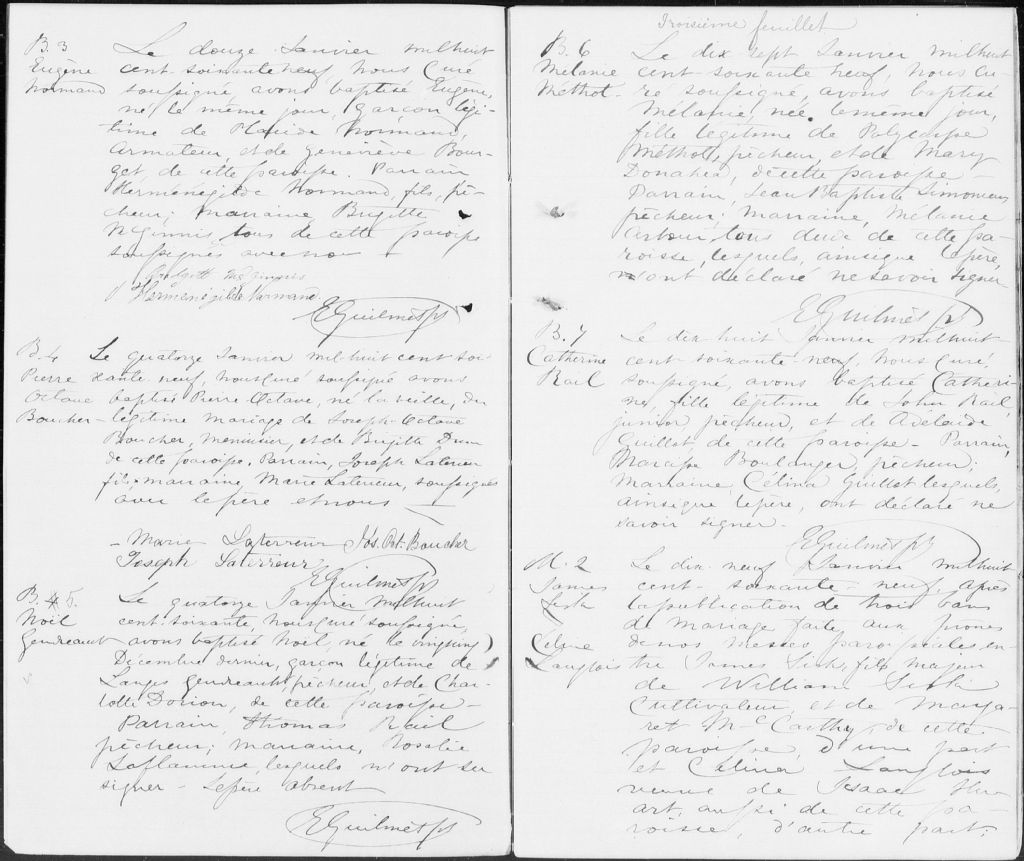 B. 3
Eugène
Normand
Le douze Janvier milhuit
cent soixante neuf, nous Curé
soussigné avons baptisé Eugène,
né, le même jour, garçon légi-
time de Placide Normand,
Armateur, et de Geneviève Bour-
get, de cette paroisse. Parrain
Hermenegilde Normand, fils, pê-
cheur; marraine, Brigitte
McGinnis, tous de cette paroisse
soussignés avec nous
Brigitt McGinnis
Hermenegilde Normand
E Guilmèt ptr
B. 4
Pierre
Octave
Boucher
Le quatorze Janvier milhuit cent soi-
xante neuf, nous Curé soussigné avons
baptisé Pierre Octave, né la veille, du
légitime mariage de Joseph Octave
Boucher, menuisier, et de Brigitte Dunn
de cette paroisse. Parrain, Joseph Laterreur
fils, marraine, Marie Laterreur, soussignés
avec le père et nous
- Marie Laterreur Jos. Oct. Boucher
Joseph Laterreur
E Guilmèt ptr
B. 5.
Noël
Gendreault
Le quatorze Janvier milhuit
cent soixante, nous Curé soussigné,
avons baptisé Noël, né le vingt
Décembre dernier, garçon légitime de
Langes Gendreault, pêcheur, et de Char-
lotte Dorion, de cette paroisse -
Parrain, Thomas Rail
pêcheur; marraine, Rosalie
Laflamme, lesquels n'ont su
signer - Le père absent
E Guilmèt ptr
Troisième feuillet
B. 6
Mélanie
Méthot -
Le dix sept Janvier milhuit
cent soixante neuf, nous Cu-
ré soussigné, avons baptisé
Mélanie, née le même jour,
fille légitime de Polycarpe
Méthot, pêcheur, et de Mary
Donahea, de cette paroisse -
Parrain, Jean Baptiste Simoneau
pêcheur; marraine, Mélanie
tous deux de cette pa-
roisse, lesquels, ainsique le père,
m'ont déclaré ne savoir signer
E Guilmèt ptr
B. 7
Catherine
Rail
Le dix-huit Janvier milhuit
cent soixante-neuf, nous Curé
soussigné, avons baptisé Catheri-
ne, fille légitime de John Rail,
junior, pêcheur, et de Adelaide
Guillot de cette paroisse - Parrain,
Narcisse Boulanger, pêcheur;
Marraine, Célina Guillot lesquels,
ainsique le père, ont déclaré ne
savoir signer -
E Guilmèt ptr
M. 2
James
Lisk
Céline
Langlois
Le dix neuf Janvier milhuit
cent soixante neuf, après
la publication de trois bans
de mariage faite aux prônes
de nos messes paroissiales en-
tre James Lisk, fils majeur
de William Lisk
Cultivateur, et de Marga-
ret McCarthy, de cette
paroisse, d'une part
et Celina Langlois
veuve de Isaac
aussi de cette pa-
roisse, d'autre part;